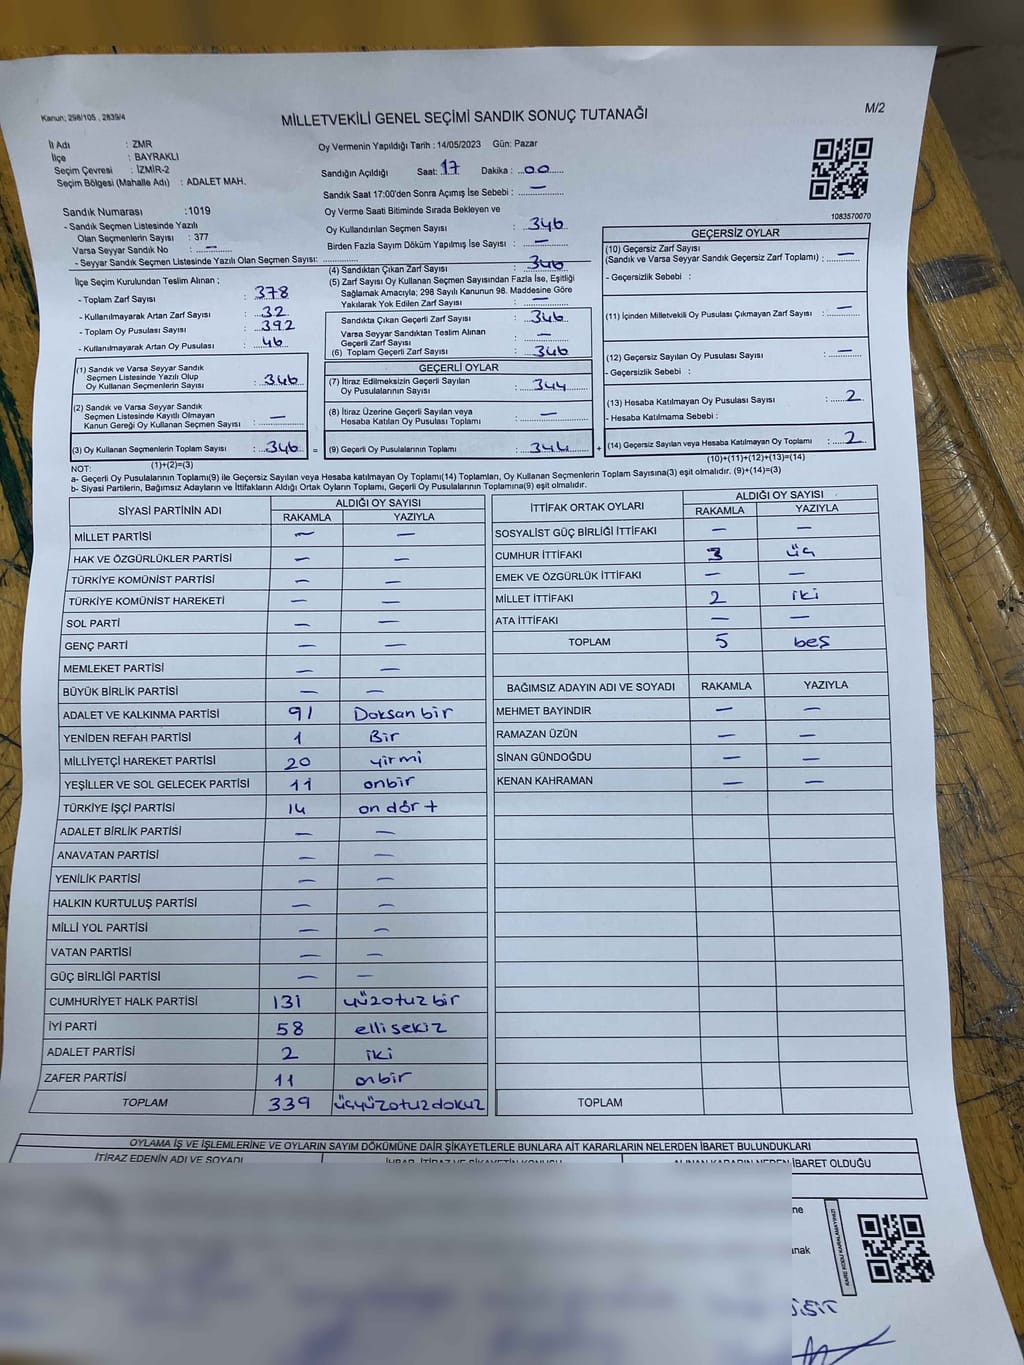 Kanun; 298/105 , 2839/4
MİLLETVEKİLİ GENEL SEÇİMİ SANDIK SONUÇ TUTANAĞI
M/2
İl Adı : ZMR
İlçe : BAYRAKLI
Seçim Çevresi : İZMİR-2
Seçim Bölgesi (Mahalle Adı) : ADALET MAH.
Sandık Numarası :1019
- Sandık Seçmen Listesinde Yazılı
Olan Seçmenlerin Sayısı : 377
Varsa Seyyar Sandık No : —
- Seyyar Sandık Seçmen Listesinde Yazılı Olan Seçmen Sayısı: ..............
Oy Vermenin Yapıldığı Tarih : 14/05/2023 Gün: Pazar
Sandığın Açıldığı Saat: 17 Dakika : 00
Sandık Saat 17:00'den Sonra Açımış İse Sebebi : —
Oy Verme Saati Bitiminde Sırada Bekleyen ve
Oy Kullandırılan Seçmen Sayısı : 346
Birden Fazla Sayım Döküm Yapılmış İse Sayısı : —
1083570070
İlçe Seçim Kurulundan Teslim Alınan ;
- Toplam Zarf Sayısı : 378
- Kullanılmayarak Artan Zarf Sayısı : 32
- Toplam Oy Pusulası Sayısı : 392
- Kullanılmayarak Artan Oy Pusulası : 46
(1) Sandık ve Varsa Seyyar Sandık
Seçmen Listesinde Yazılı Olup
Oy Kullanan Seçmenlerin Sayısı : 346
(2) Sandık ve Varsa Seyyar Sandık
Seçmen Listesinde Kayıtlı Olmayan
Kanun Gereği Oy Kullanan Seçmen Sayısı : —
(3) Oy Kullanan Seçmenlerin Toplam Sayısı : 346 =
(1)+(2)=(3)
(4) Sandıktan Çıkan Zarf Sayısı : 346
(5) Zarf Sayısı Oy Kullanan Seçmen Sayısından Fazla İse, Eşitliği
Sağlamak Amacıyla; 298 Sayılı Kanunun 98. Maddesine Göre
Yakılarak Yok Edilen Zarf Sayısı : —
Sandıkta Çıkan Geçerli Zarf Sayısı : 346
Varsa Seyyar Sandıktan Teslim Alınan
Geçerli Zarf Sayısı : —
(6) Toplam Geçerli Zarf Sayısı : 346
GEÇERLİ OYLAR
(7) İtiraz Edilmeksizin Geçerli Sayılan
Oy Pusulalarının Sayısı : 344
(8) İtiraz Üzerine Geçerli Sayılan veya
Hesaba Katılan Oy Pusulası Toplamı : —
(9) Geçerli Oy Pusulalarının Toplamı : 344 +
GEÇERSİZ OYLAR
(10) Geçersiz Zarf Sayısı
(Sandık ve Varsa Seyyar Sandık Geçersiz Zarf Toplamı) : —
- Geçersizlik Sebebi :
(11) İçinden Milletvekili Oy Pusulası Çıkmayan Zarf Sayısı : —
(12) Geçersiz Sayılan Oy Pusulası Sayısı : —
- Geçersizlik Sebebi :
(13) Hesaba Katılmayan Oy Pusulası Sayısı : 2
- Hesaba Katılmama Sebebi :
(14) Geçersiz Sayılan veya Hesaba Katılmayan Oy Toplamı : 2
(10)+(11)+(12)+(13)=(14)
NOT:
a- Geçerli Oy Pusulalarının Toplamı(9) ile Geçersiz Sayılan veya Hesaba katılmayan Oy Toplamı(14) Toplamları, Oy Kullanan Seçmenlerin Toplam Sayısına(3) eşit olmalıdır. (9)+(14)=(3)
b- Siyasi Partilerin, Bağımsız Adayların ve İttifakların Aldığı Ortak Oyların Toplamı, Geçerli Oy Pusulalarının Toplamına(9) eşit olmalıdır.
SİYASİ PARTİNİN ADI ALDIĞI OY SAYISI
RAKAMLA YAZIYLA
MİLLET PARTİSİ — —
HAK VE ÖZGÜRLÜKLER PARTİSİ — —
TÜRKİYE KOMÜNİST PARTİSİ — —
TÜRKİYE KOMÜNİST HAREKETİ — —
SOL PARTİ — —
GENÇ PARTİ — —
MEMLEKET PARTİSİ — —
BÜYÜK BİRLİK PARTİSİ — —
ADALET VE KALKINMA PARTİSİ 91 Doksan bir
YENİDEN REFAH PARTİSİ 1 Bir
MİLLİYETÇİ HAREKET PARTİSİ 20 yirmi
YEŞİLLER VE SOL GELECEK PARTİSİ 11 onbir
TÜRKİYE İŞÇİ PARTİSİ 14 on dört
ADALET BİRLİK PARTİSİ — —
ANAVATAN PARTİSİ — —
YENİLİK PARTİSİ — —
HALKIN KURTULUŞ PARTİSİ — —
MİLLİ YOL PARTİSİ — —
VATAN PARTİSİ — —
GÜÇ BİRLİĞİ PARTİSİ — —
CUMHURİYET HALK PARTİSİ 131 yüzotuz bir
İYİ PARTİ 58 elli sekiz
ADALET PARTİSİ 2 iki
ZAFER PARTİSİ 11 onbir
TOPLAM 339 üçyüzotuzdokuz
İTTİFAK ORTAK OYLARI ALDIĞI OY SAYISI
RAKAMLA YAZIYLA
SOSYALİST GÜÇ BİRLİĞİ İTTİFAKI — —
CUMHUR İTTİFAKI 3 üç
EMEK VE ÖZGÜRLÜK İTTİFAKI — —
MİLLET İTTİFAKI 2 iki
ATA İTTİFAKI — —
TOPLAM 5 beş
BAĞIMSIZ ADAYIN ADI VE SOYADI RAKAMLA YAZIYLA
MEHMET BAYINDIR — —
RAMAZAN ÜZÜN — —
SİNAN GÜNDOĞDU — —
KENAN KAHRAMAN — —
TOPLAM
OYLAMA İŞ VE İŞLEMLERİNE VE OYLARIN SAYIM DÖKÜMÜNE DAİR ŞİKAYETLERLE BUNLARA AİT KARARLARIN NELERDEN İBARET BULUNDUKLARI
İTİRAZ EDENİN ADI VE SOYADI İHBAR, İTİRAZ VE ŞİKAYETİN KONUSU ALINAN KARARIN NEDEN İBARET OLDUĞU
ne
anak